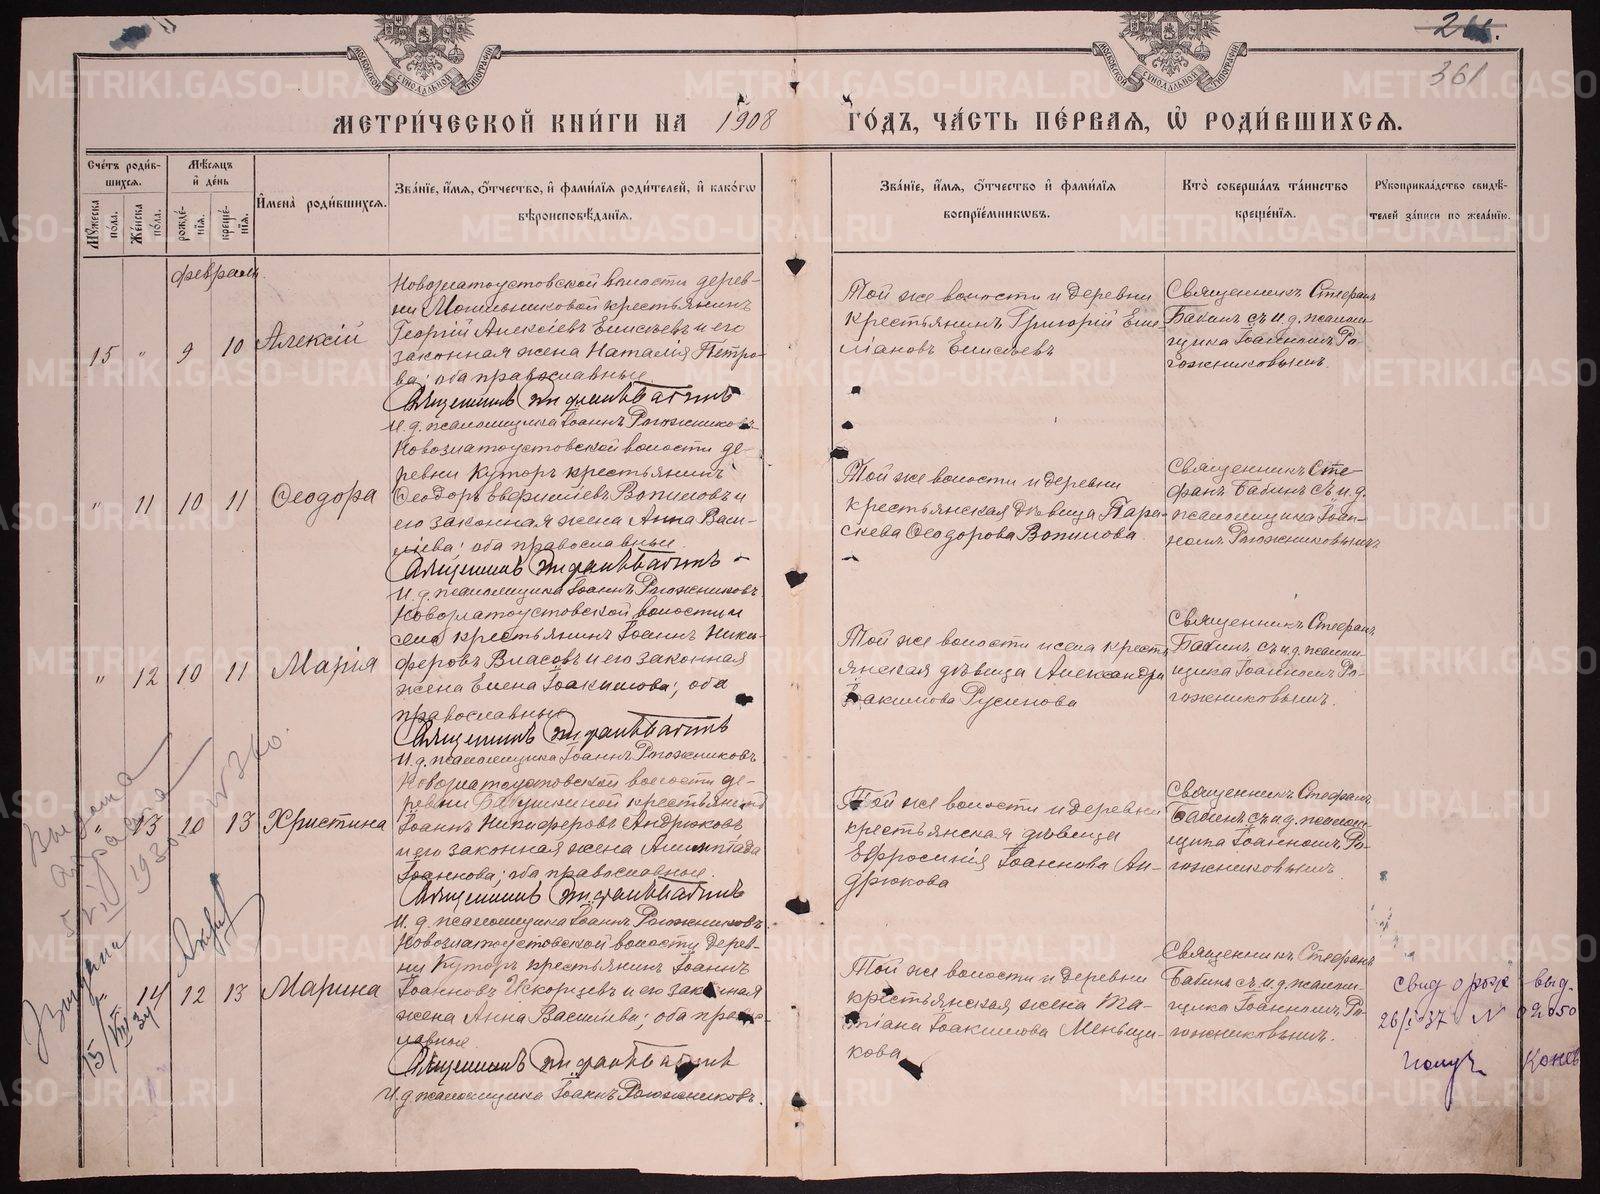 361
МЕТРИ́ЧЕСКОЙ КНИ́ГИ НА 1908 ГО́ДЪ, ЧА́СТЬ ПЕ́РВАЯ, Ѡ РОДИ́ВШИХСЯ.
Сче́тъ роди́в-
шихся.
Мѣ́сяцъ
и҆ де́нь
Му́жеска по́ла.
Же́нска по́ла.
рожде́-
нїя.
креще́-
нїя.
И҆мена̀ роди́вшихся.
Зва́нїе, и҆́мя, ѻ҆́тчество, и҆ фами́лїя роди́телей, и҆ како́гѡ
вѣроисповѣ́данїя.
Зва́нїе, и҆́мя, ѻ҆́тчество и҆ фами́лїя
воспрїе́мниковъ.
Кто̀ соверша́лъ та́инство
креще́нїя.
Рукоприкла́дство свидѣ́-
телей за́писи по жела́нїю.
февраль
15 " 9 10 Алексій
Новозлатоустовской волости дерев-
ни Мотыльниковой крестьянинъ
Георгій Алексіевъ Елисѣевъ и его
законная жена Наталія Петро-
ва; оба православные
Священникъ Стефанъ Бабинъ
И.д. псаломщика Іоаннъ Рогожниковъ
Той же волости и деревни
крестьянинъ Григорій Еме-
ліановъ Елисѣевъ
Священникъ Стефанъ
Бабинъ съ и.д. псалом-
щика Іоанномъ Ро-
гожниковымъ.
" 11 10 11 Ѳеодора
Новозлатоустовской волости де-
ревни Куторъ крестьянинъ
Ѳеодоръ Вопиловъ и
его законная жена Анна Васи-
ліева; оба православные
Священникъ Стефанъ Бабинъ
И.д. псаломщика Іоаннъ Рогожниковъ
Той же волости и деревни
крестьянская дѣвица Пара-
скева Ѳеодорова Вопилова
Священникъ Сте-
фанъ Бабинъ съ и.д.
псаломщика Іоан-
номъ Рогожниковымъ
" 12 10 11 Марія
Новозлатоустовской волости и
села крестьянинъ Іоаннъ Ники-
феровъ Власовъ и его законная
жена Елена Іоакимова; оба
православные
Священникъ Стефанъ Бабинъ
И.д. псаломщика Іоаннъ Рогожниковъ
Той же волости и села кресть-
янская дѣвица Александра
Іоакимова Русинова
Священникъ Стефанъ
Бабинъ съ и.д. псалом-
щика Іоанномъ Ро-
гожниковымъ.
" 13 10 13 Христина
Новозлатоустовской волости де-
ревни Бабушкиной крестьянинъ
Іоаннъ Никиферовъ Андрюковъ
и его законная жена Олимпіада
Іоаннова; оба православные.
Священникъ Стефанъ Бабинъ
И.д. псаломщика Іоаннъ Рогожниковъ.
Той же волости и деревни
крестьянская дѣвица
Евфросинія Іоаннова Ан-
дрюкова
Священникъ Стефанъ
Бабинъ съ и.д. псалом-
щика Іоанномъ Ро-
гожниковымъ
14 12 13 Марина
Новозлатоустовской волости дерев-
ни Куторъ крестьянинъ Іоаннъ
Іоанновъ и его законная
жена Анна Васильева; оба право-
славные
Священникъ Стефанъ Бабинъ
И.д. псаломщика Іоаннъ Рогожниковъ.
Той же волости и деревни
крестьянская жена Та-
тіана Іоакимова Меньщи-
кова
Священникъ Стефанъ
Бабинъ съ и.д. псалом-
щика Іоанномъ Ро-
гожниковымъ.
свид о рож выд.
METRIKI.GASO-URAL.RU